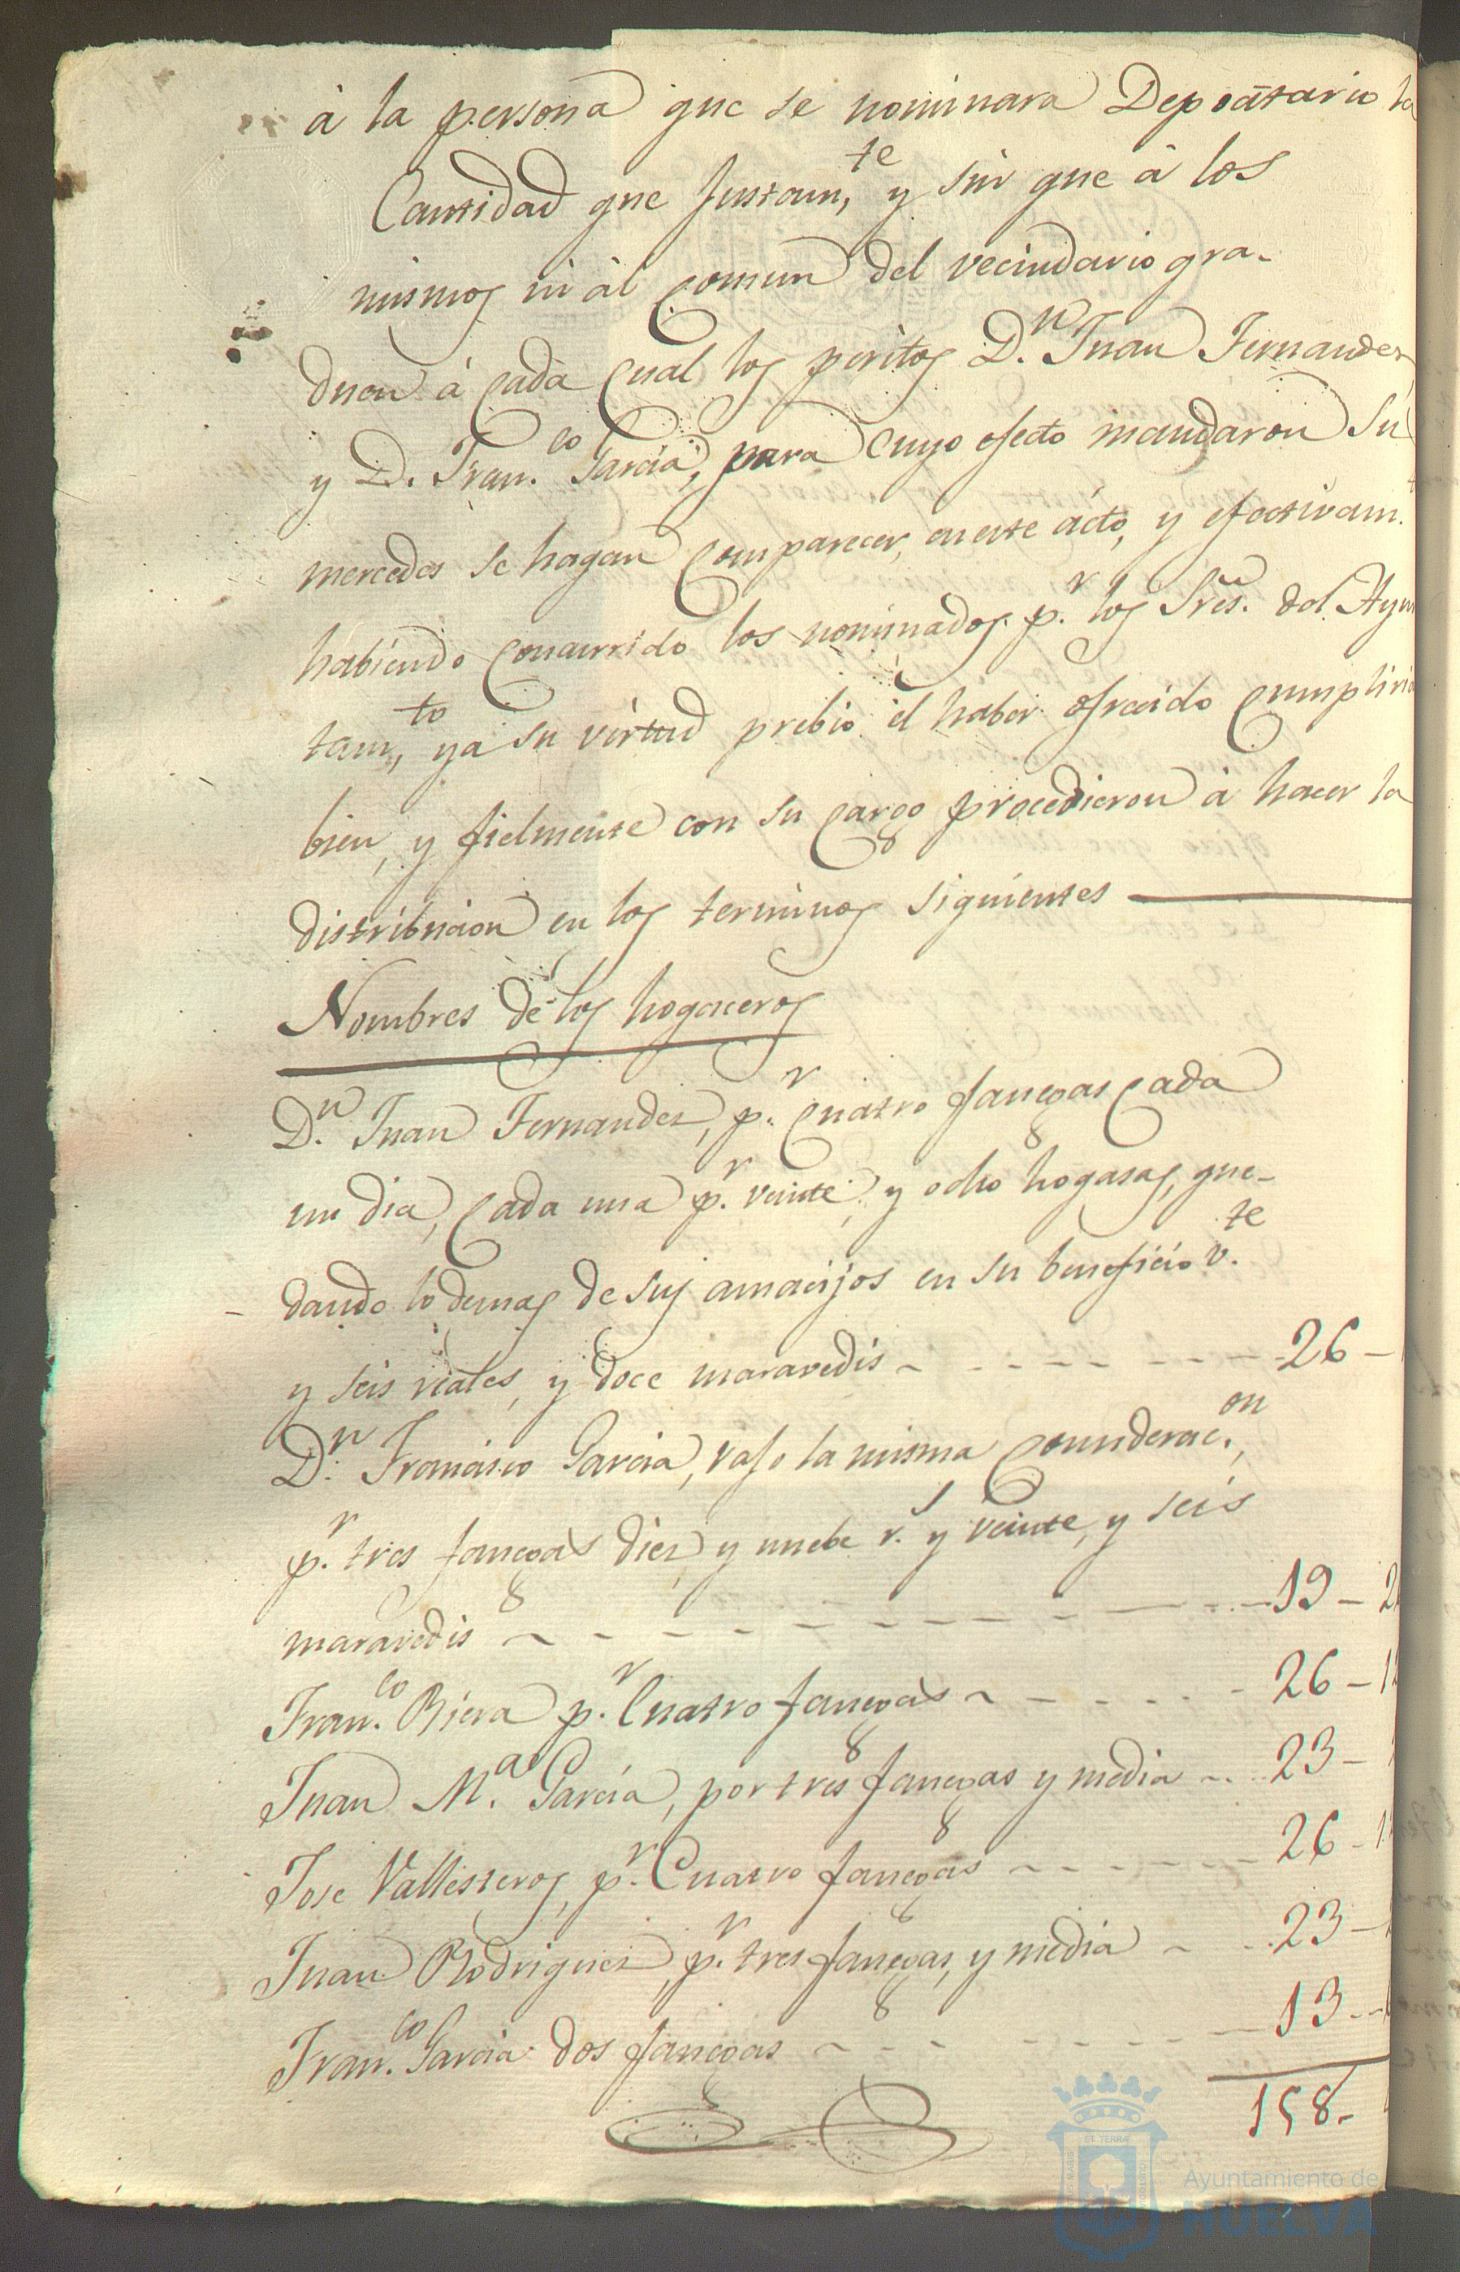 à la persona que se nominara Depoātario la
Cantidad que Justam,te y sin que à los
mismos ni àl comun del vecindario gra-
duen à cada cual los peritos D.n Juan Fernandez
y D. Fran.co Garcia, para cuyo efecto mandaron Su
mercedes se hagan comparecer, en este ácto, y efectivam.
habiendo concurrido los nominados p.r los Sres. del Ayun
tam,to ya su virtud prebio el haber ofrecido cumplirian
bien, y fielmente con su cargo procedieron à hacer la
distribucion en los terminos siguientes
Nombres de los hogaceros
D.n Juan Fernandez, p.r cuatro fanegas cada
un dia, cada una p.r veinte, y ocho hogasas, que-
dando lo demas de sus amacijos en su beneficio v.te
y seis reales, y doce maravedis 26 -
D.n Francisco Garcia, vajo la misma considerac.on,
p.r tres fanegas diez, y nuebe r.s y veinte, y seis
maravedis 19 - 2
Fran.co Riera p.r Cuatro fanegas 26 - 12
Juan M.a Garcia, por tres fanegas y media 23 -
Jose Vallesteros, p.r Cuatro fanegas 26 - 1
Juan Rodriguez, p.r tres fanegas, y media 23 -
Fran.co Garcia dos fanegas 13 -
158.
Ayuntamiento de
HUELVA